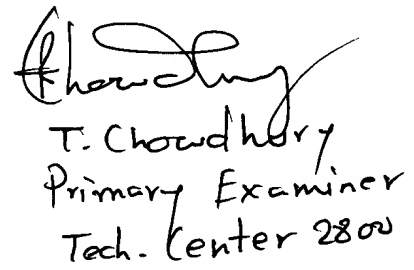 TChowdhury
T. Chowdhury
Primary Examiner
Tech. Center 2800